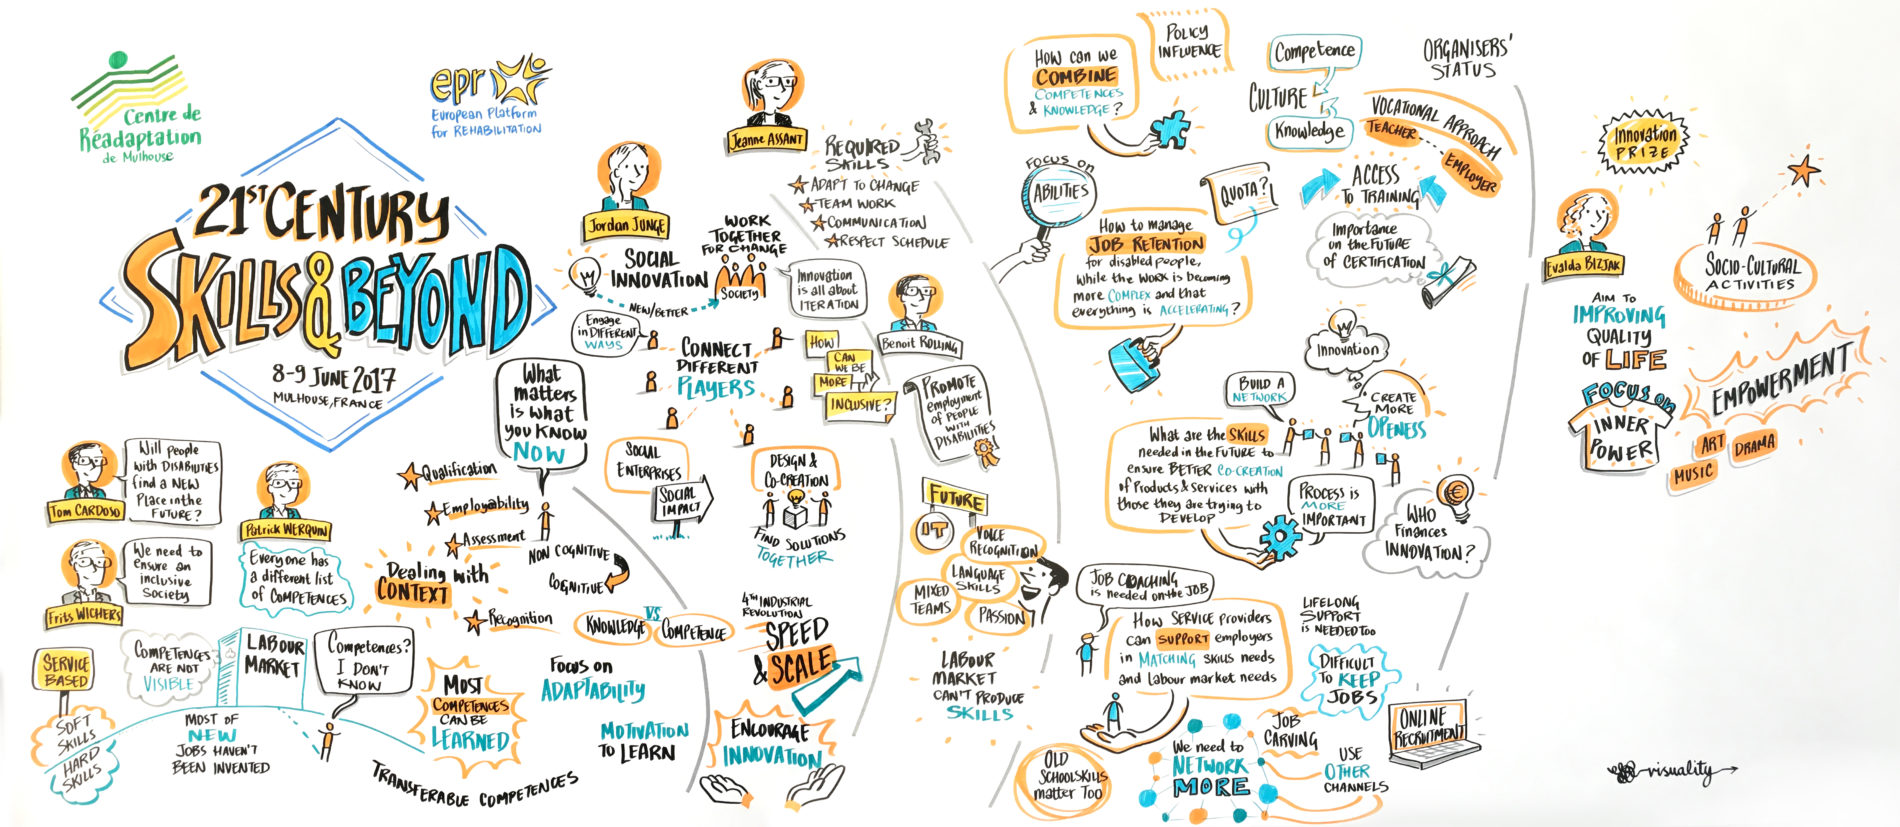 Centre de
Réadaptation
de Mulhouse
epr
European Platform
for REHABILITATION
21ST CENTURY
SKILLS & BEYOND
8-9 JUNE 2017
MULHOUSE, FRANCE
Tom CARDOSO
Will people
with DISABILITIES
find a NEW
Place in the
FUTURE?
Frits WICHERS
We need to
ensure an
inclusive
Society
Patrick WERQUIN
Everyone has
a different list
of COMPETENCES
What
matters
is what
you know
NOW
Qualification
Employability
Assessment
Dealing with
CONTEXT
Recognition
NON COGNITIVE
COGNITIVE
KNOWLEDGE VS COMPETENCE
SERVICE
BASED
SOFT
SKILLS
HARD
SKILLS
COMPETENCES
ARE NOT
VISIBLE
LABOUR
MARKET
MOST OF
NEW
JOBS HAVEN'T
BEEN INVENTED
Competences?
I DON'T
KNOW
MOST
COMPETENCES
CAN BE
LEARNED
TRANSFERABLE COMPETENCES
FOCUS on
ADAPTABILITY
MOTIVATION
TO LEARN
Jordan JUNGE
SOCIAL
INNOVATION
NEW/BETTER
WORK
TOGETHER
FOR CHANGE
SOCIETY
Innovation
is all about
ITERATION
Engage
in DIFFERENT
WAYS
CONNECT
DIFFERENT
PLAYERS
HOW
CAN
WE BE
MORE
INCLUSIVE?
SOCIAL
ENTERPRISES
SOCIAL
IMPACT
DESIGN &
CO-CREATION
FIND SOLUTIONS
TOGETHER
4TH INDUSTRIAL
REVOLUTION
SPEED
& SCALE
ENCOURAGE
INNOVATION
Jeanne ASSANT
REQUIRED
SKILLS
ADAPT TO CHANGE
TEAM WORK
COMMUNICATION
RESPECT SCHEDULE
Benoit ROLLING
PROMOTE
employment
of PEOPLE
WITH
DISABILITIES
FUTURE
IT
VOICE
RECOGNITION
LANGUAGE
SKILLS
MIXED
TEAMS
PASSION
LABOUR
MARKET
CAN'T PRODUCE
SKILLS
How can we
COMBINE
COMPETENCES
& KNOWLEDGE?
POLICY
INFLUENCE
Competence
CULTURE
Knowledge
ORGANISERS'
STATUS
VOCATIONAL APPROACH
TEACHER
EMPLOYER
FOCUS on
ABILITIES
QUOTA?
ACCESS
TO TRAINING
Importance
on the FUTURE
of CERTIFICATION
How to manage
JOB RETENTION
for disabled people,
while the WORK is becoming
more COMPLEX and that
everything is ACCELERATING?
Innovation
BUILD A
NETWORK
CREATE
MORE
OPENESS
What are the SKILLS
needed in the FUTURE to
ensure BETTER CO-CREATION
of Products & Services with
those they are trying to
DEVELOP
PROCESS is
MORE
IMPORTANT
WHO
Finances
INNOVATION?
JOB COACHING
is needed on the JOB
How SERVICE providers
can SUPPORT employers
in MATCHING skills needs
and labour market needs
LIFELONG
SUPPORT
is NEEDED too
DIFFICULT
TO KEEP
JOBS
OLD
SCHOOL SKILLS
matter Too
We need to
NETWORK
MORE
JOB
CARVING
USE
OTHER
CHANNELS
ONLINE
RECRUITMENT
Innovation
PRIZE
Evalda BIZJAK
SOCIO-CULTURAL
ACTIVITIES
AIM TO
IMPROVING
QUALITY
OF LIFE
FOCUS on
INNER
POWER
EMPOWERMENT
ART
DRAMA
MUSIC
visuality